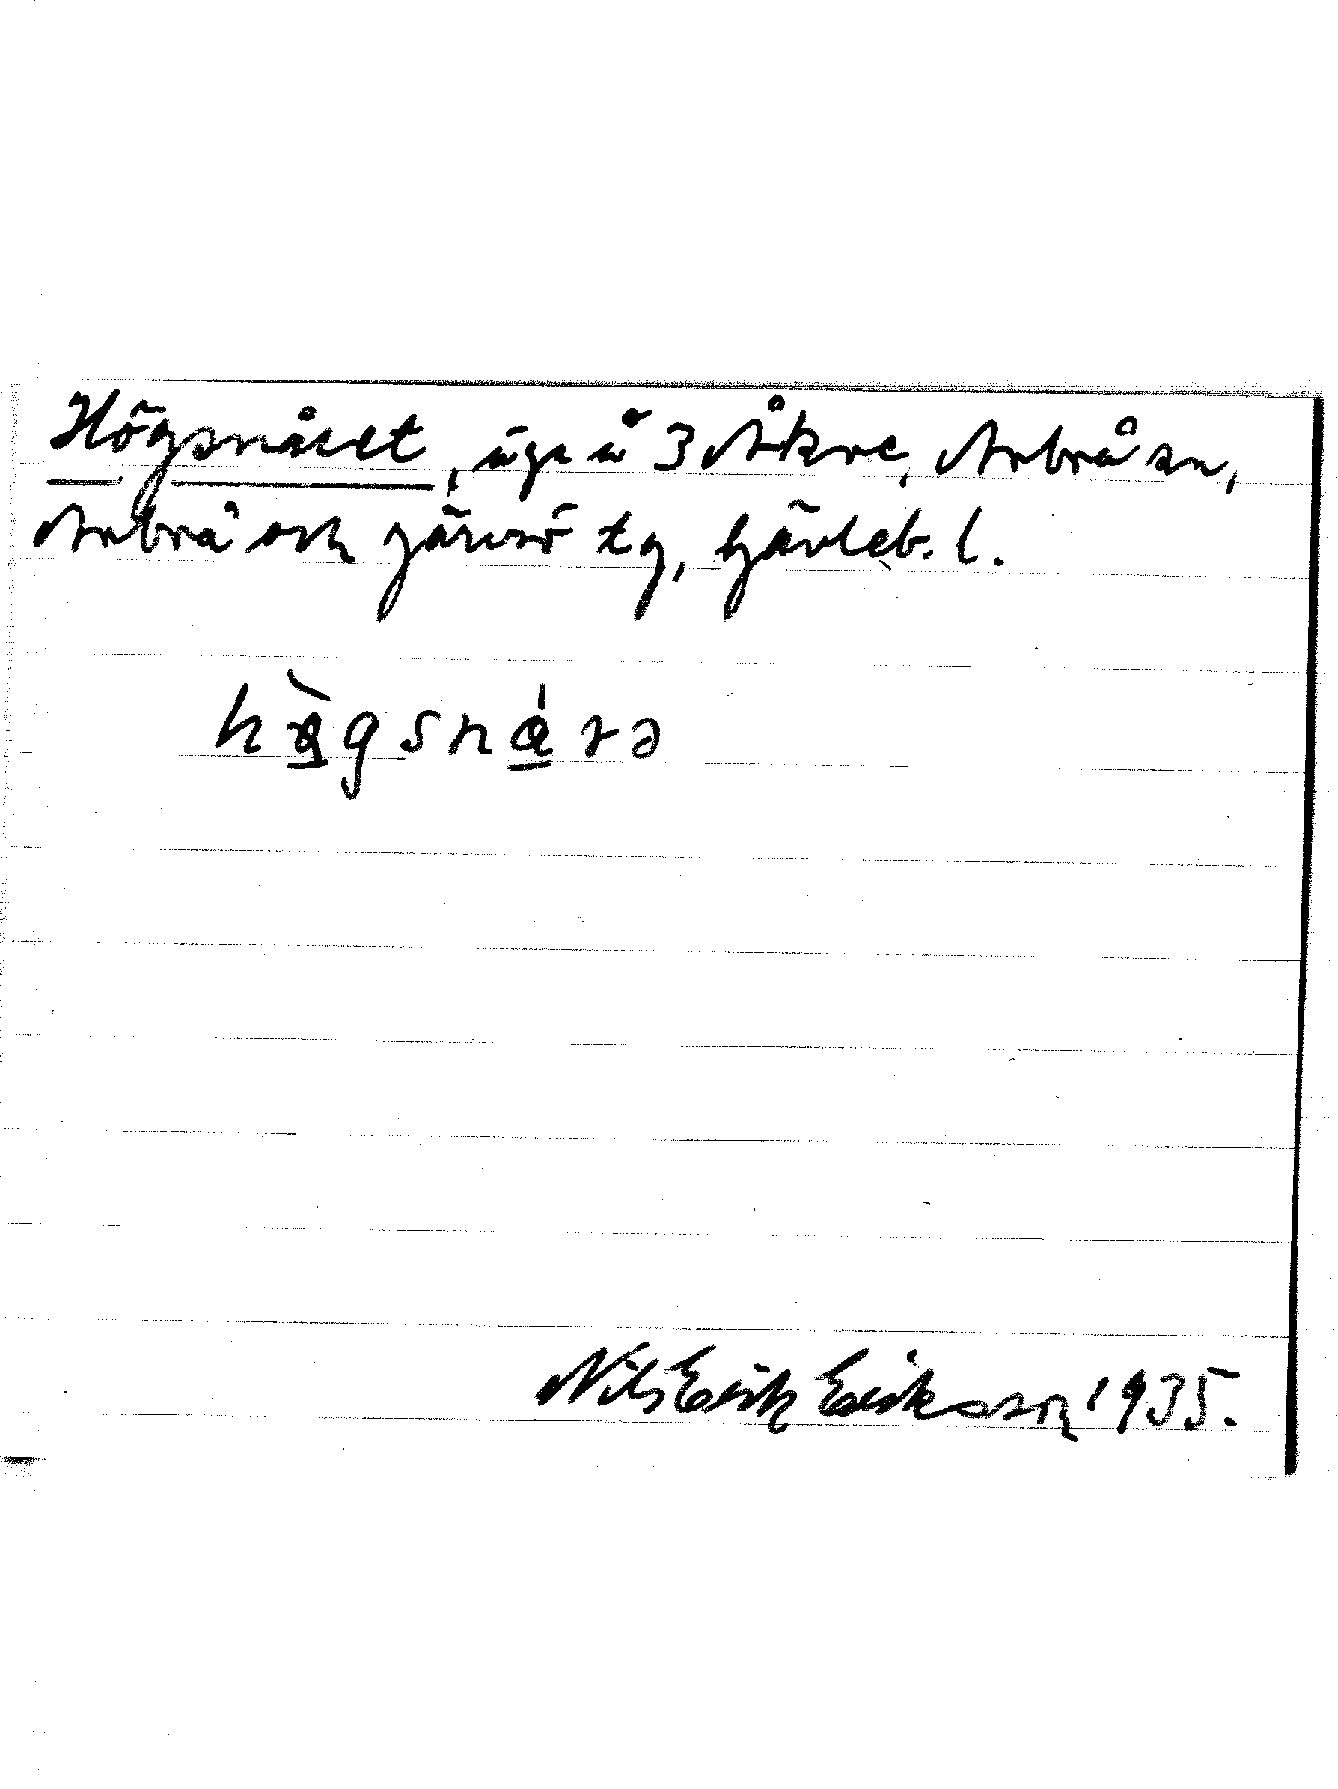 Högsnåret, äga å 3 Åkre, Arbrå sn,
Arbrå och Järvsö tg, Gävleb. l.
hø̀gsnárə
Nils Erik Eriksson 1935.